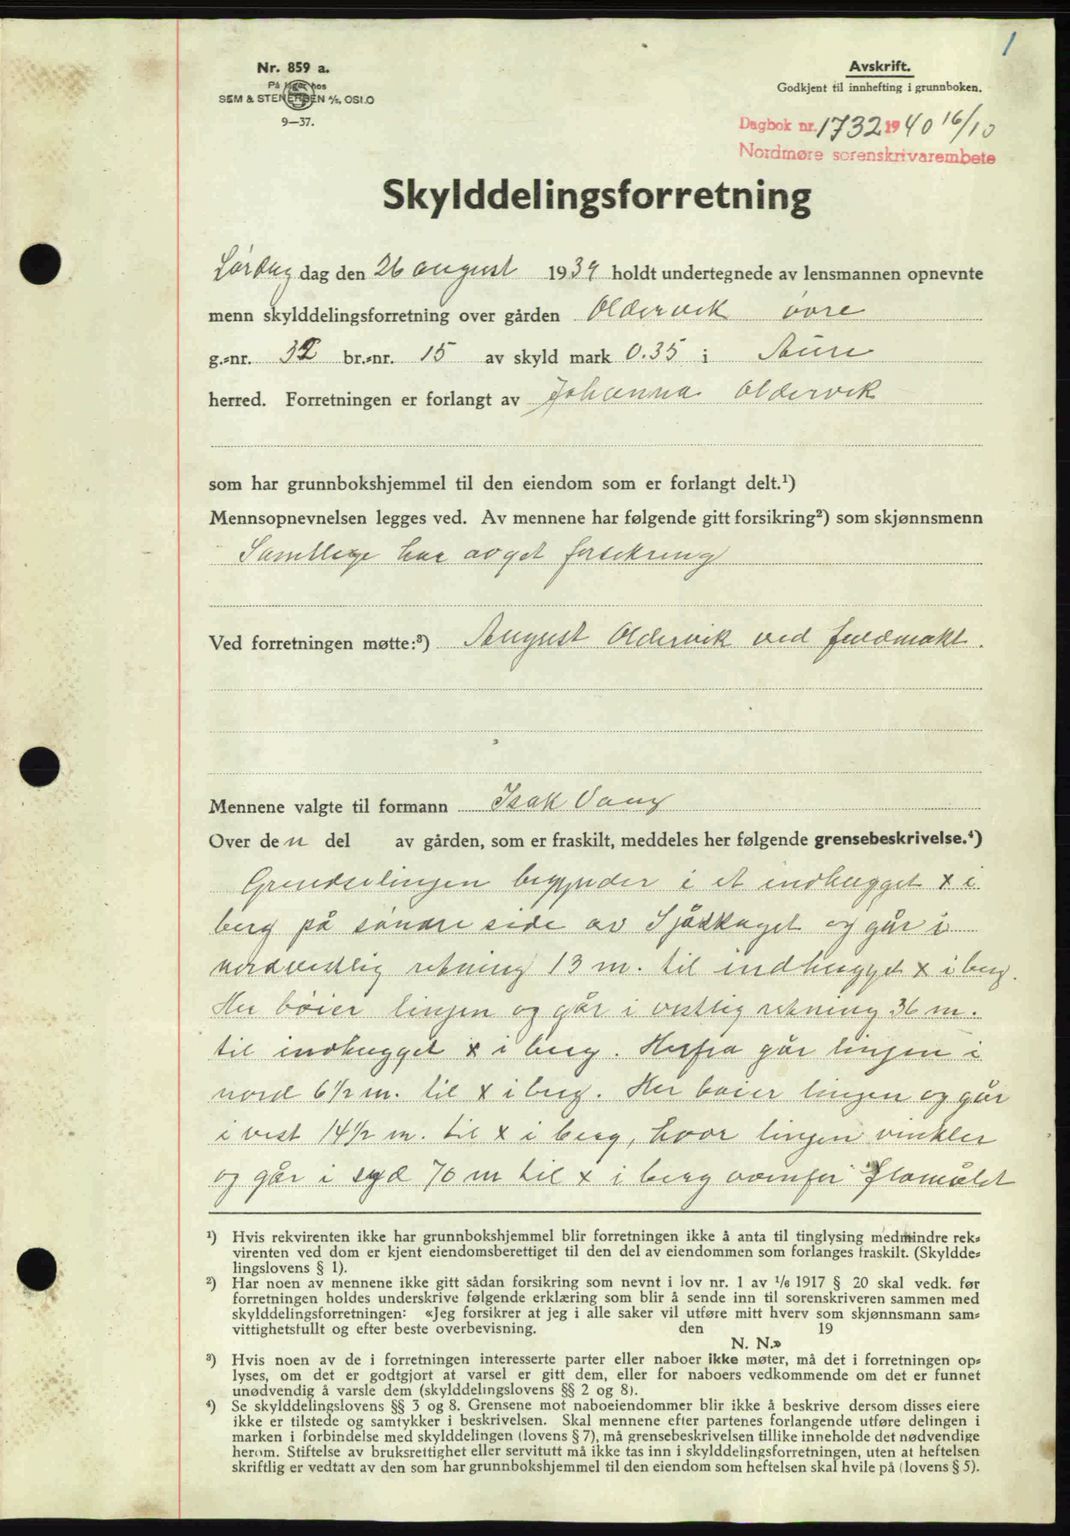 1
Nr. 859 a.
På lager hos
SEM & STENERSEN A/S, OSLO
9—37.
Avskrift.
Godkjent til innhefting i grunnboken.
Dagbok nr. 1732 1940 16/10
Nordmøre sorenskrivarembete
Skylddelingsforretning
Lørdag dag den 26 august 1939 holdt undertegnede av lensmannen opnevnte
menn skylddelingsforretning over gården Oldervik øvre
g.-nr. 32 br.-nr. 15 av skyld mark 0.35 i Aure
herred. Forretningen er forlangt av Johanna Oldervik
som har grunnbokshjemmel til den eiendom som er forlangt delt.¹)
Mennsopnevnelsen legges ved. Av mennene har følgende gitt forsikring²) som skjønnsmenn
Samtlige har avgit forsikring
Ved forretningen møtte:³) August Oldervik ved fuldmakt.
Mennene valgte til formann Isak Vaag
Over den del av gården, som er fraskilt, meddeles her følgende grensebeskrivelse.⁴)
Grendselinjen begynder i et indhugget x i
berg på søndre side av Sjåskaget og går i
nordvestlig retning 13 m. til indhugget x i berg.
Her bøier linjen og går i vestlig retning 36 m.
til indhugget x i berg. Herfra går linjen i
nord 6½ m. til x i berg. Her bøier linjen og går
i vest 14½ m. til x i berg, hvor linjen vinkler
og går i syd 70 m til x i berg ovenfor flomålet
¹) Hvis rekvirenten ikke har grunnbokshjemmel blir forretningen ikke å anta til tinglysing medmindre rek-
virenten ved dom er kjent eiendomsberettiget til den del av eiendommen som forlanges fraskilt. (Skyldde-
lingslovens § 1).
²) Har noen av mennene ikke gitt sådan forsikring som nevnt i lov nr. 1 av 1/6 1917 § 20 skal vedk. før
forretningen holdes underskrive følgende erklæring som blir å sende inn til sorenskriveren sammen med
skylddelingsforretningen: «Jeg forsikrer at jeg i alle saker vil utføre mitt hverv som skjønnsmann sam-
vittighetsfullt og efter beste overbevisning. den 19
N. N.»
³) Hvis noen av de i forretningen interesserte parter eller naboer ikke møter, må det i forretningen op-
lyses, om det er godtgjort at varsel er gitt dem, eller for naboers vedkommende om det er funnet
unødvendig å varsle dem (skylddelingslovens §§ 2 og 8).
⁴) Se skylddelingslovens §§ 3 og 8. Grensene mot naboeiendommer blir ikke å beskrive dersom disses eiere
ikke er tilstede og samtykker i beskrivelsen. Skal mennene efter partenes forlangende utføre delingen i
marken i forbindelse med skylddelingen (lovens § 7), må grensebeskrivelsen tillike inneholde det nødvendige
herom. Stiftelse av bruksrettighet eller servitutt må ikke tas inn i skylddelingsforretningen, uten at heftelsen
skriftlig er vedtatt av den som har grunnbokshjemmel til den eiendom som heftelsen skal hvile på (lovens § 5).